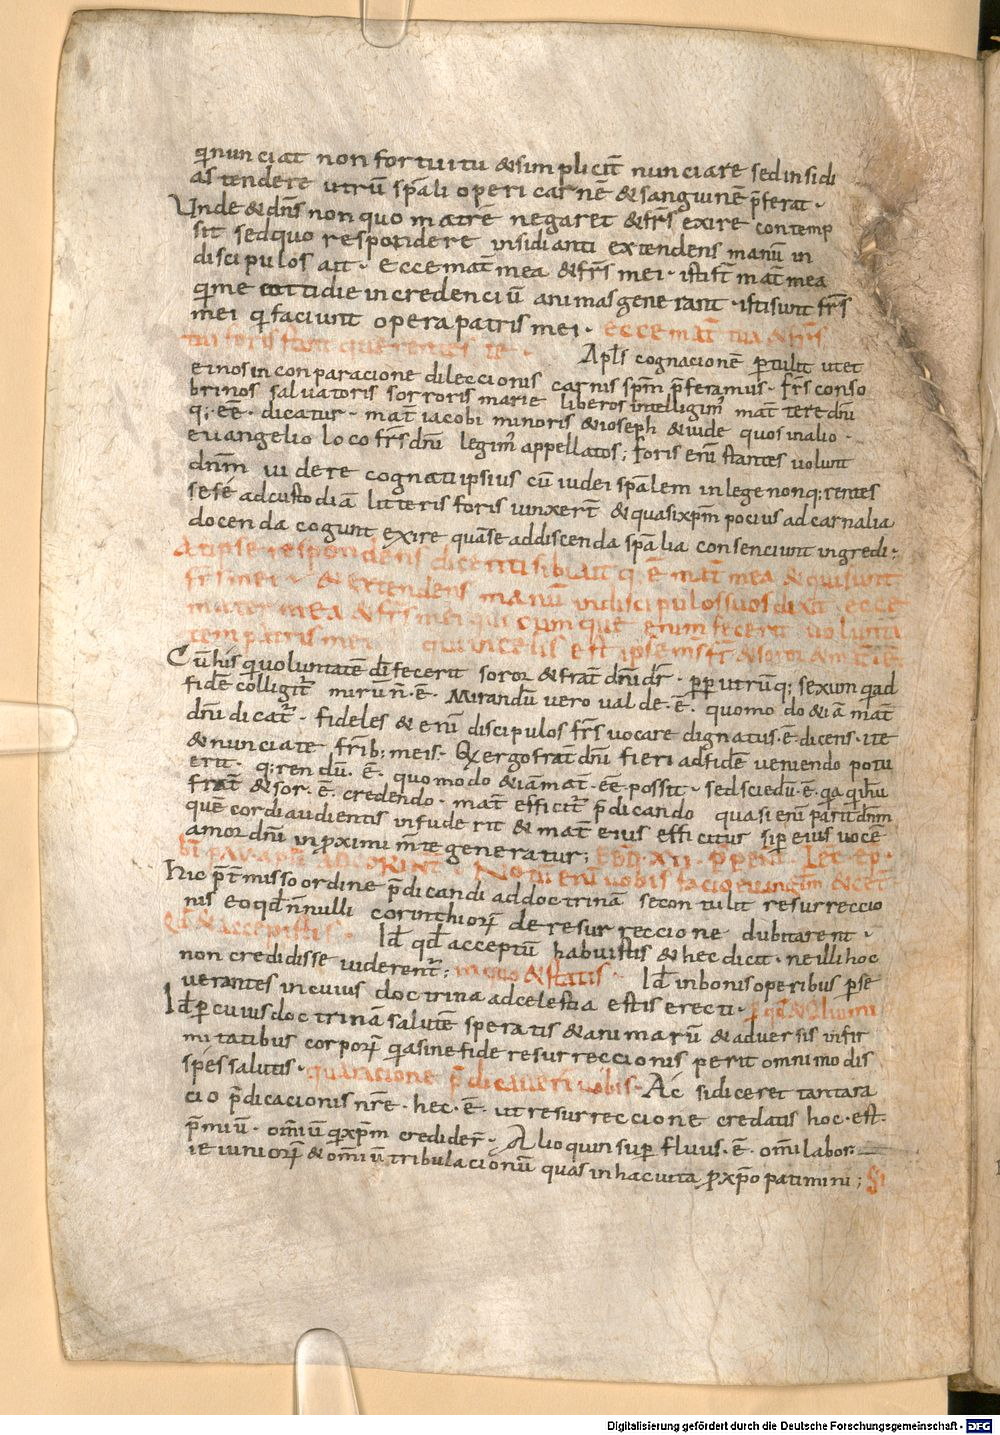 qui nunciat non fortuitu & simplicit̄ nunciare sed insidi
as tendere utrū sp̄ali operi carnē & sanguinē p̄ferat·
Unde & dn̄s non quo matrē negaret & fr̄s exire contemp
sit sed quo respondere insidianti extendens manū in
discipulos ait· ecce mat̄ mea & fr̄s mei· isti st̄ mat̄ mea
qui me cottidie in credenciū animas generant· isti sunt fr̄s
mei qui faciunt opera patris mei· ecce mat̄ tua & fr̄s
tui foris stant querentes te·
Apl̄s cognacionē pertulit utet
e nos in conparacione dileccionis carnis sp̄m p̄feramus· fr̄s conso
brinos salvatoris sorroris marie liberos intelligim̄ mat̄tere dn̄i
q; ēē· dicatur· mat̄ iacobi minoris & ioseph & iude quos in alio·
evangelio loco fr̄s dn̄i legim̄ appellatos; foris enī stantes volunt
dn̄m videre cognati ipsius cū iudei sp̄alem in lege non q;rentes
sese ad custodiā litteris foris vinxer̄t & quasi xp̄m pocius ad carnalia
docenda cogunt exire quā se ad discenda sp̄alia consenciunt ingredi;
At ipse respondens dicenti sibi ait q; ē mat̄ mea & qui sunt
fr̄s mei & extendens manū in discipulos suos dix̄ ecce
mater mea & fr̄s mei qui cumque enim fecerit volunta
tem patris mei qui in celis est ipse ms̄ fr̄ & soror & mat̄ ē
Cū his qui voluntatē dī fecerit soror & frat̄ dn̄i dr̄· pp̄ utrūq; sexum q ad
fidē colligit̄ mirū n̄· ē· Mirandū vero valde· ē· quomodo & iā mat̄
dn̄i dicat̄· fideles & enī discipulos fr̄s vocare dignatus· ē· dicens· ite
& nunciate frīb; meis· Q ergo frat̄ dn̄i fieri ad fidē veniendo potu
erit· q;rendū· ē· quomodo & iā mat̄· ēē possit· sed sciedū· ē· q̄a qui ih̄u
frat̄ & sor· ē· credendo· mat̄ efficit̄ p̄dicando quasi enī parit dn̄m
quē cordi audientis infuderit & mat̄ eius efficitur si per eius vocē
amor dn̄i in pximi m̄te generatur;
Hic p̄t̄misso ordine p̄dicandi ad doctrinā se contulit resurreccio
nis eo qd̄ n̄nulli corinthior̄ de resurreccione dubitarent·
Qd̄ & accepistis· Id̄ qd̄ acceptū habuistis & hec dicit· ne illi hoc
non credidisse viderent̄; in quo & statis· Id̄ in bonis operibus pse
verantes in cuius doctrina ad celestia estis erecti· p̄ qd̄ & salvimi
Id̄ p cuius doctrinā salutē speratis & animarū & adversis infir
mitatibus corpor̄ q̄a sine fide resurreccionis perit omnimodis
spes salutis· qua racione p̄dicaveri vobis· Ac si diceret tanta ra
cio p̄dicacionis nr̄e· hec· ē· ut resurreccione credatis hoc· est·
p̄miū· om̄iū q xp̄m crediderī· Alioquin superfluus· ē· om̄i labor·
ieiunior̄ & om̄iū tribulacionū quas in hac vita p xp̄o patimini; Si
Digitalisierung gefördert durch die Deutsche Forschungsgemeinschaft - DFG